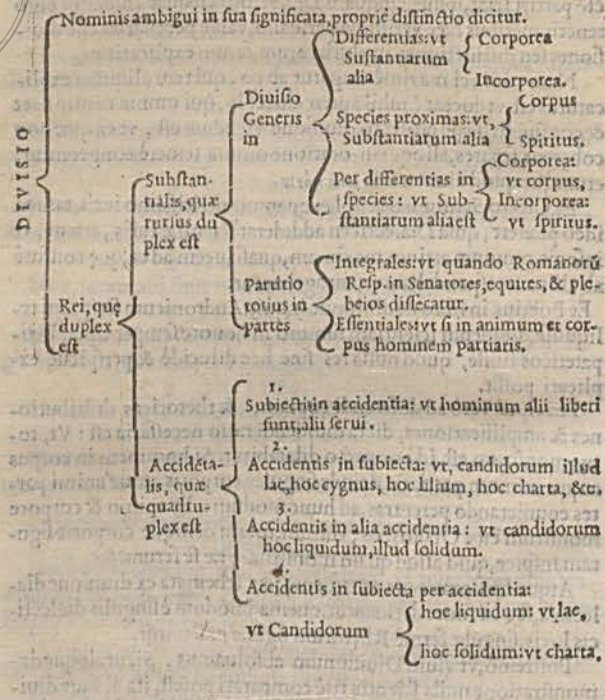 DIVISIO
Nominis ambigui in sua significata, propriè distinctio dicitur.
Rei, quę
duplex
est
Substan-
tialis, quæ
rursus du
plex est
Diuisio
Generis
in
Differentias: vt
Substantiarum
alia
Corporea
Incorporea.
Species proximas: vt,
Substantiarum alia
Corpus
Spiritus.
Per differentias in
species: vt Sub-
stantiarum alia est
Corporea:
vt corpus,
Incorporea:
vt spiritus.
Partitio
totius in
partes
Integrales: vt quando Romanorũ
Resp. in Senatores, equites, & ple-
beios dissecatur.
Essentiales: vt si in animum et cor-
pus hominem partiaris.
Accidẽta-
lis, quæ
quadru-
plex est
1.
Subiecti in accidentia: vt hominum alii liberi
sunt, alii serui.
2.
Accidentis in subiecta: vt, candidorum illud
lac, hoc cygnus, hoc lilium, hoc charta, &c.
3.
Accidentis in alia accidentia: vt candidorum
hoc liquidum, illud solidum.
4.
Accidentis in subiecta per accidentia:
vt Candidorum
hoc liquidum: vt lac,
hoc solidum: vt charta,